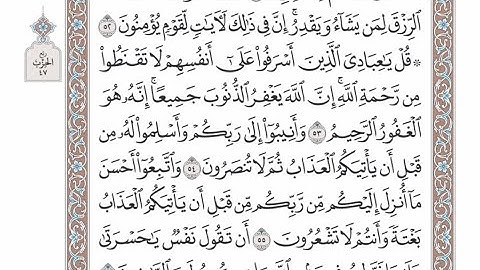 الرِّزْقَ لِمَن يَشَآءُ وَيَقْدِرُ إِنَّ فِى ذَٰلِكَ لَأٓيَٰتٍ لِّقَوْمٍ يُؤْمِنُونَ ٥٢
ربع
الحزب
٤٧
۞ قُلْ يَٰعِبَادِىَ ٱلَّذِينَ أَسْرَفُوا۟ عَلَىٰٓ أَنفُسِهِمْ لَا تَقْنَطُوا۟
مِن رَّحْمَةِ ٱللَّهِ ۚ إِنَّ ٱللَّهَ يَغْفِرُ ٱلذُّنُوبَ جَمِيعًا ۚ إِنَّهُۥ هُوَ
ٱلْغَفُورُ ٱلرَّحِيمُ ٥٣ وَأَنِيبُوٓا۟ إِلَىٰ رَبِّكُمْ وَأَسْلِمُوا۟ لَهُۥ مِن
قَبْلِ أَن يَأْتِيَكُمُ ٱلْعَذَابُ ثُمَّ لَا تُنصَرُونَ ٥٤ وَٱتَّبِعُوٓا۟ أَحْسَنَ
مَآ أُنزِلَ إِلَيْكُم مِّن رَّبِّكُم مِّن قَبْلِ أَن يَأْتِيَكُمُ ٱلْعَذَابُ
بَغْتَةً وَأَنتُمْ لَا تَشْعُرُونَ ٥٥ أَن تَقُولَ نَفْسٌ يَٰحَسْرَتَىٰ